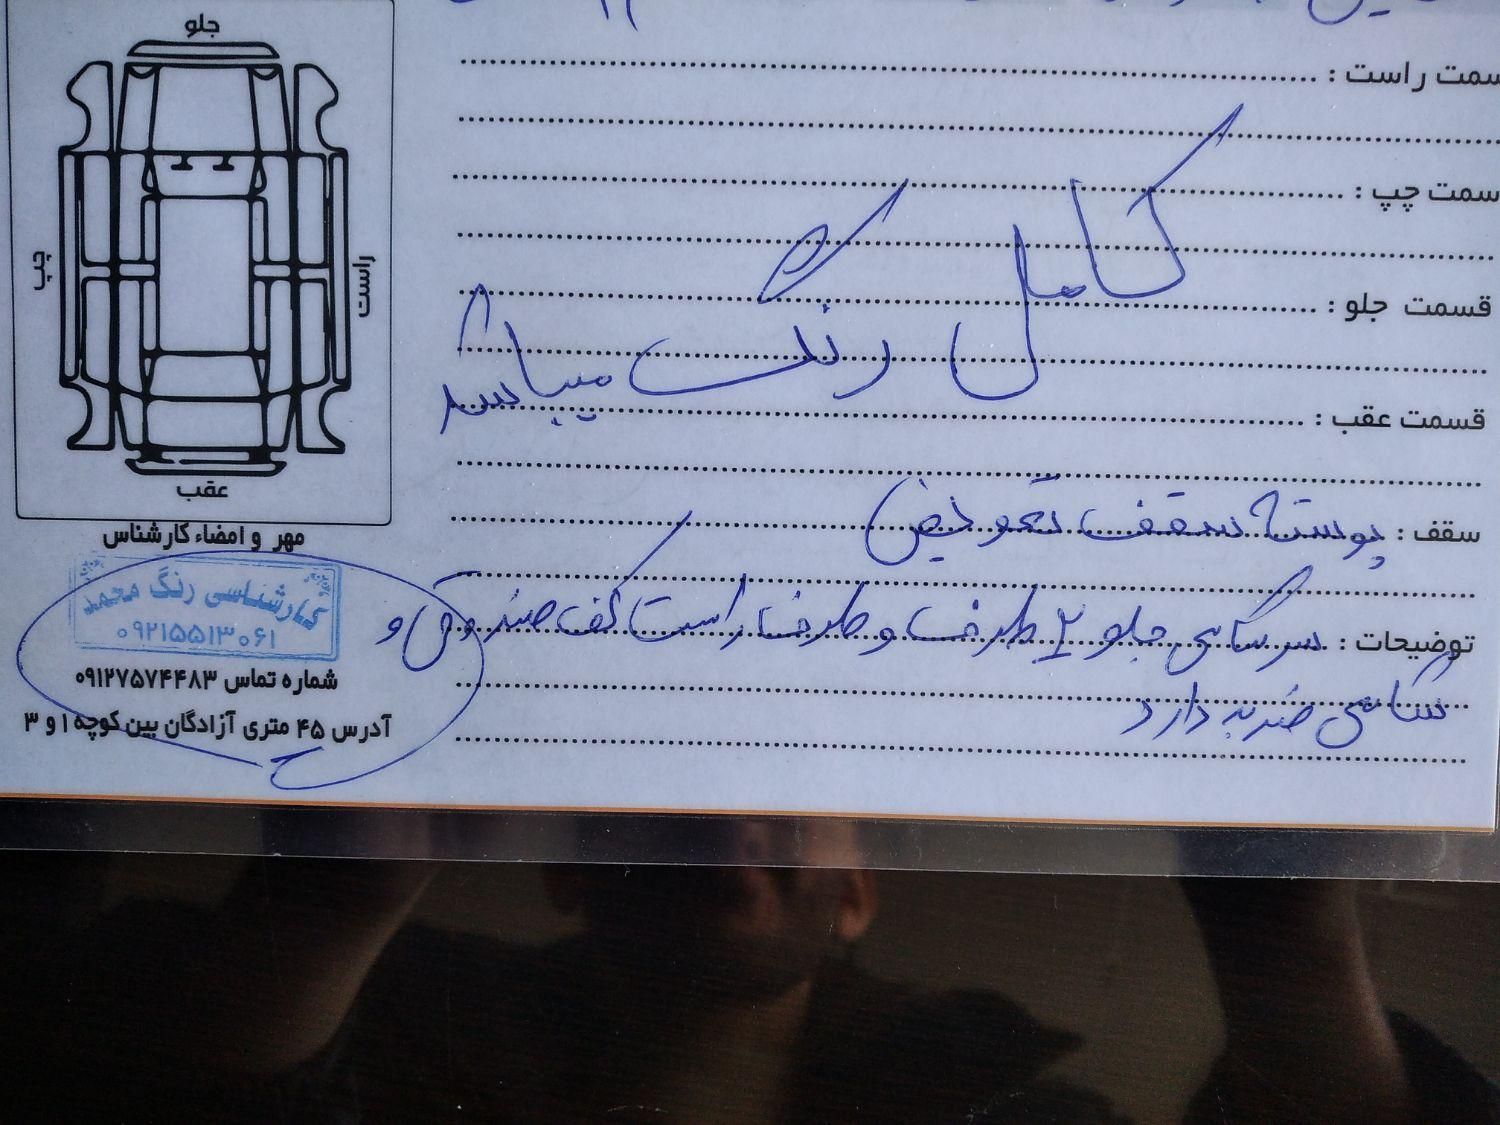 جلو
چپ
راست
عقب
سمت راست :
سمت چپ :
قسمت جلو :
کامل رنگ میباشد
قسمت عقب :
سقف : پوسته سقف تعویض
توضیحات : سر شاسی جلو ۲ طرف و طرف راست کف صندوق و
شاسی ضربه دارد
مهر و امضاء کارشناس
کارشناسی رنگ محمد
۰۹۲۱۵۵۱۳۰۶۱
شماره تماس ۰۹۱۲۷۵۷۴۴۸۳
آدرس ۴۵ متری آزادگان بین کوچه ۱ و ۳